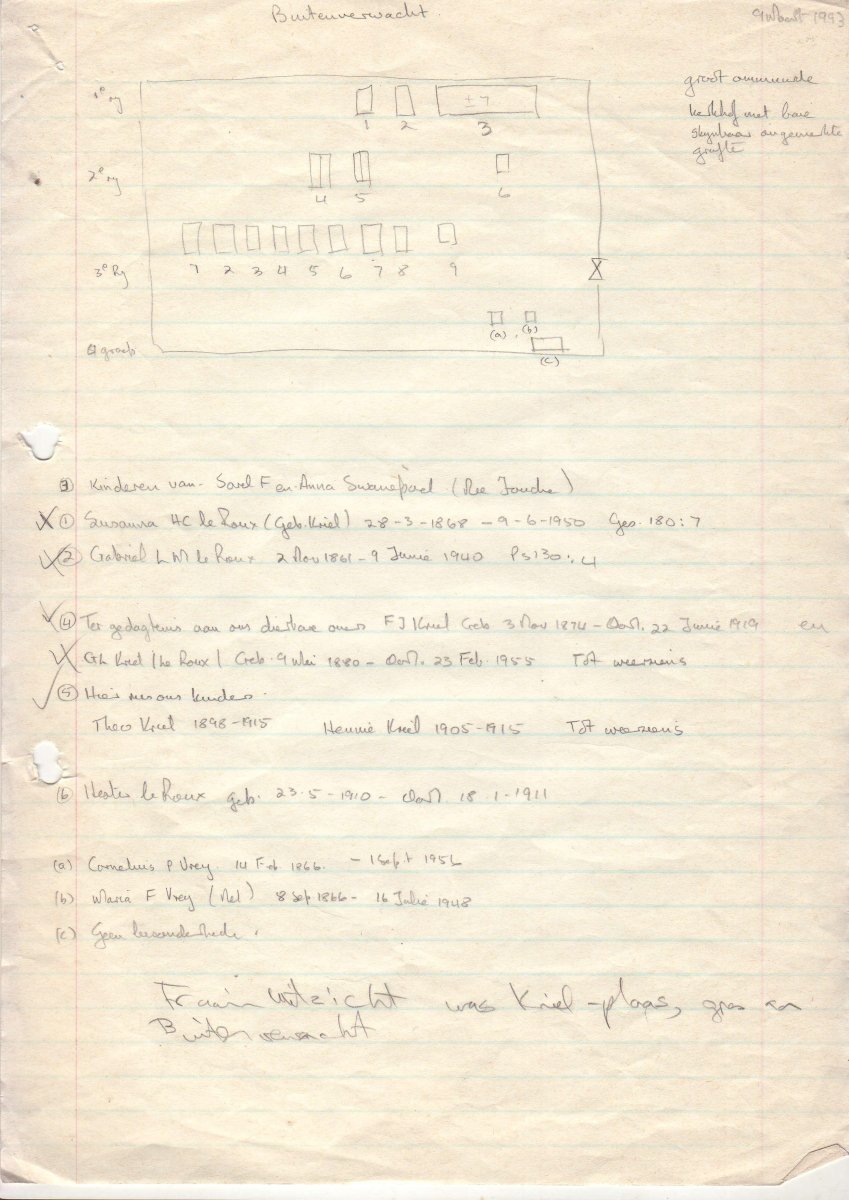 Buitenverwacht.
9 Maart 1993
groot ommuurde
kerkhof met baie
skynbaar ongemerkte
grafte
1e ry
± 7
1 2 3
2e ry
4 5 6
3e Ry
1 2 3 4 5 6 7 8 9
(a) (b)
(c)
③ Kinderen van Sarel F en Anna Swanepoel (Nee Fouche)
① Susanna HC le Roux (Geb. Kriel) 28-3-1868 - 9-6-1950 Ges. 180:7
② Gabriel L M le Roux 2 Nov 1861 - 9 Junie 1940 Ps 130:4
④ Ter gedagtenis aan ons dierbare ouers F J Kriel Geb 3 Nov 1874 - Oorl. 22 Junie 1919 en
GL Kriel (le Roux) Geb. 9 Mei 1880 - Oorl. 23 Feb. 1955 Tot weersiens
⑤ Hier rus ons kinders.
Theo Kriel 1898-1915 Hennie Kriel 1905-1915 Tot weersiens
⑥ Hester le Roux geb. 23-5-1910 - Oorl 18.1.1911
(a) Cornelius P Vrey. 14 Feb. 1866. - 1 Sept
(b) Maria F Vrey (Nel) 8 Sep 1866 - 16 Julie 1948
(c) Geen besonderhede.
Fraaiuitzicht was Kriel-plaas, gres aan
Buitenverwacht